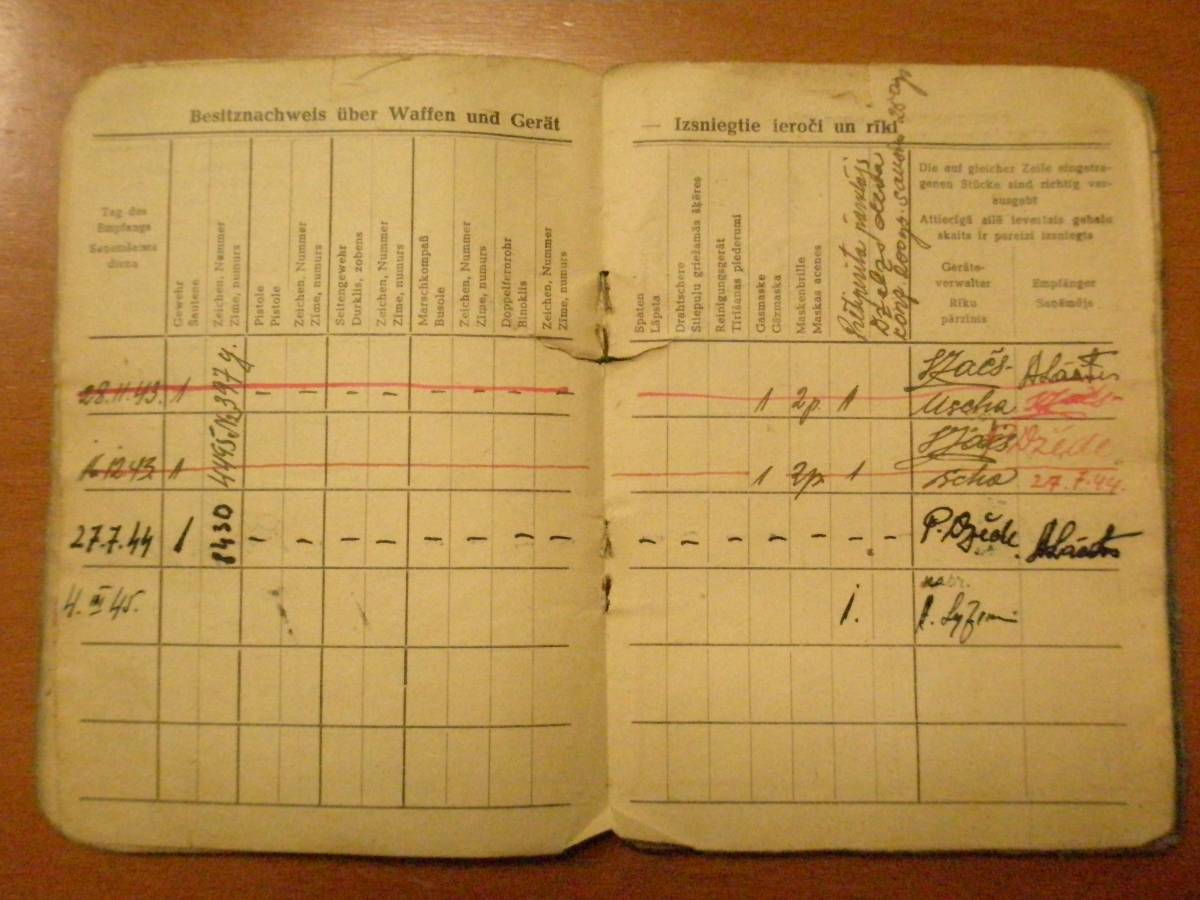 Besitznachweis über Waffen und Gerät
— Izsniegtie ieroči un rīki
Tag des
Empfangs
Saņemšanas
diena
Gewehr
Šautene
Zeichen, Nummer
Zīme, numurs
Pistole
Pistole
Zeichen, Nummer
Zīme, numurs
Seitengewehr
Durklis, zobens
Zeichen, Nummer
Zīme, numurs
Marschkompaß
Busole
Zeichen, Nummer
Zīme, numurs
Doppelfernrohr
Binoklis
Zeichen, Nummer
Zīme, numurs
Spaten
Lāpsta
Drahtschere
Stiepuļu griežamās šķēres
Reinigungsgerät
Tīrīšanas piederumi
Gasmaske
Gāzmaska
Maskenbrille
Maskas acenes
Die auf gleicher Zeile eingetra-
genen Stücke sind richtig ver-
ausgabt
Attiecīgā ailē ievestais gabalu
skaits ir pareizi izsniegts
Geräte-
verwalter
Rīku
pārzinis
Empfänger
Saņēmējs
28.11.43. 1 - - - - - - - - 1 2p. 1
Uscha
16.12.43. 1 1 2p. 1
Džede
scha 27.7.44.
27.7.44 1 8430 - - - - - - - - - - - - - - - P. Džede
4. III 45. 1.